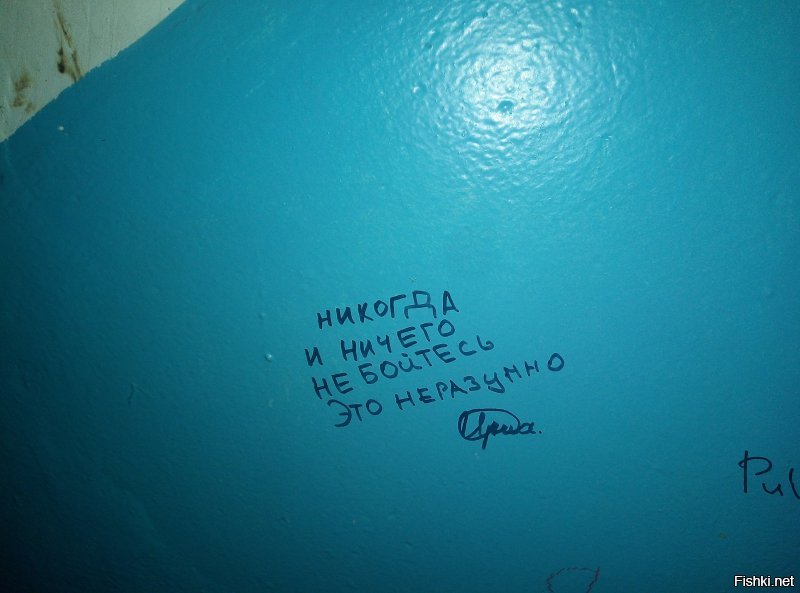 НИКОГДА
И НИЧЕГО
НЕ БОЙТЕСЬ
ЭТО НЕРАЗУМНО
Fishki.net